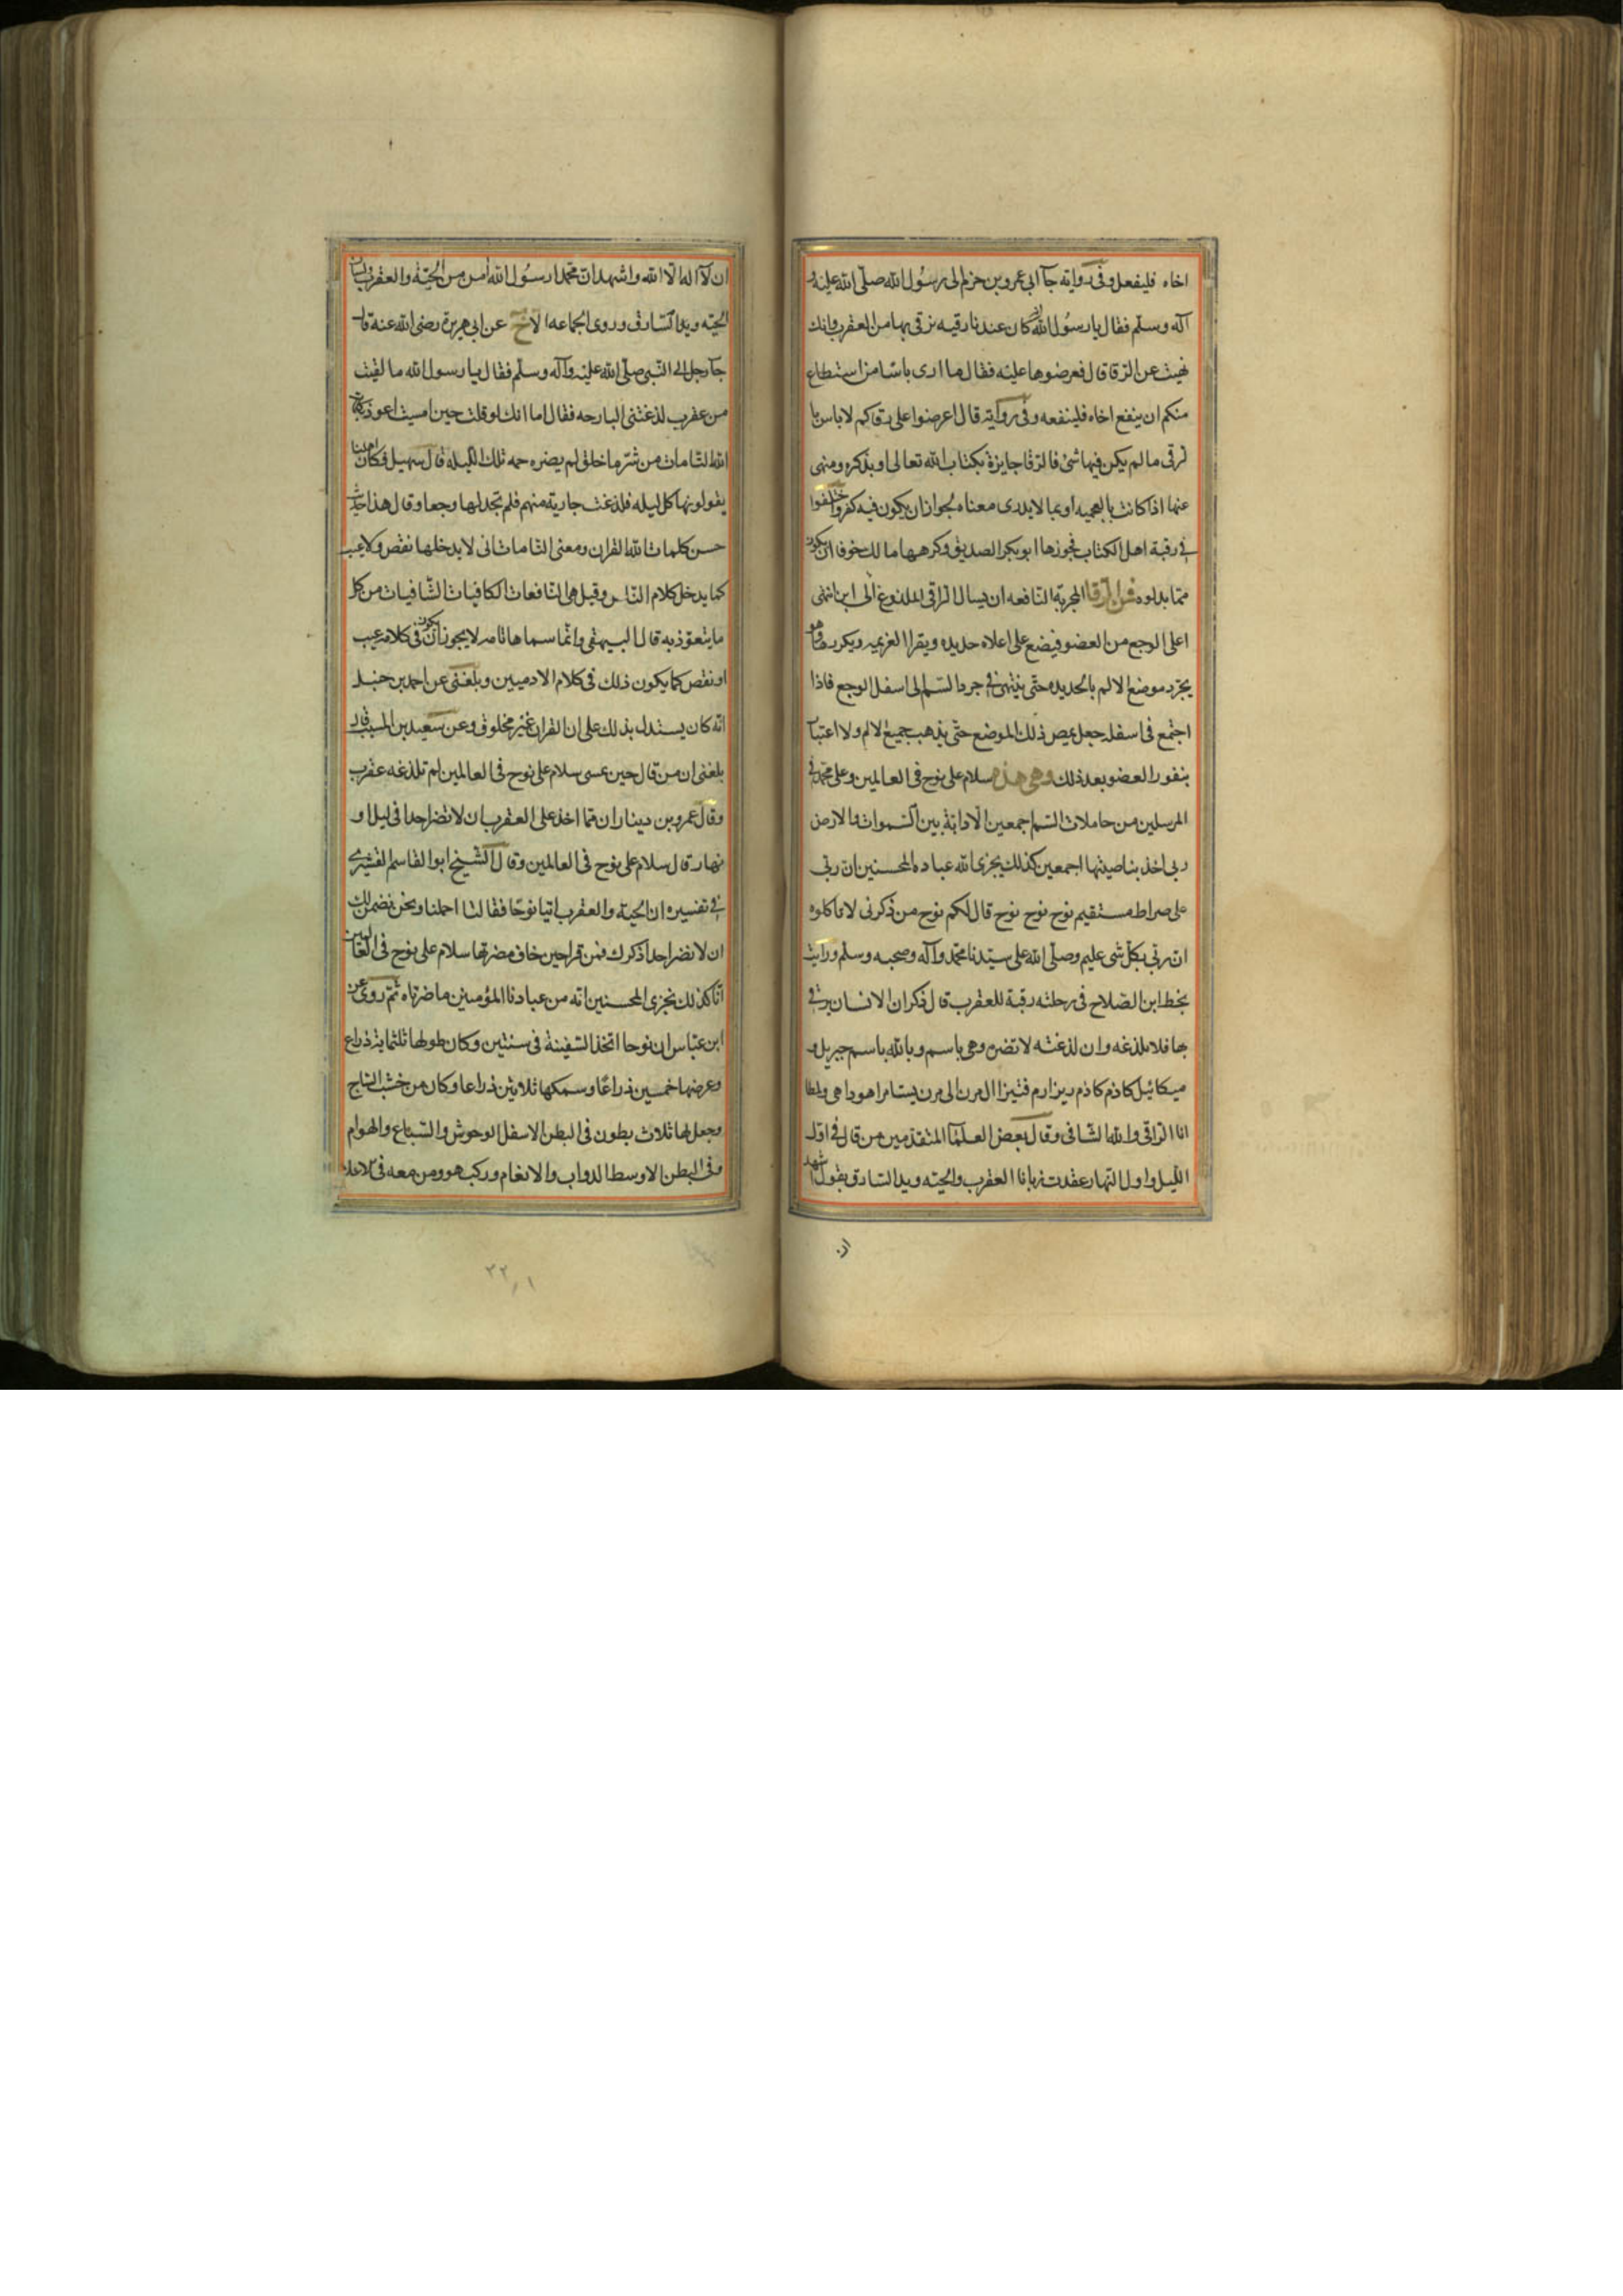 اخاه فليفعل وفى رواية جآ آل عمرو بن حزم الى رسول الله صلى الله عليه و
آله وسلم فقال يا رسول الله انه كان عندنا رقيه نرقى بها من العقرب وانك
نهيت عن الرقا قال فعرضوها عليه فقال ما ارى باسا من استطاع
منكم ان ينفع اخاه فلينفعه وفى رواية قال اعرضوا على رقاكم لا باس با
لرقى ما لم يكن فيها شئ فالرقا جايزة بكتاب الله تعالى او بذكره ومنهى
عنها اذا كانت بالعجميه او بما لا يدرى معناه لجواز ان يكون فيه كفر واختلفوا
فى رقية اهل الكتاب فجوزها ابو بكر الصديق وكرهها مالك خوفا ان يكون
مما بدلوه فمن الرقا المجربة النافعه ان يسال الراقى الملدوغ الى اين انتهى
اعلى الوجع من العضو فيضع على اعلاه حديده ويقرا العزيمه ويكررها وهو
يجرد موضع الالم بالحديده حتى ينتهى فى جرد السم الى اسفل الوجع فاذا
اجتمع فى اسفله جعل يمص ذلك الموضع حتى يذهب جميع الالم ولا اعتبار
بفتور العضو بعد ذلك وهى هذه سلام على نوح فى العالمين وعلى محمد فى
المرسلين من حاملات السم اجمعين لا دابة بين السموات والارض
ربى اخذ بناصيتها اجمعين كذلك يجزى الله عباده المحسنين ان ربى
على صراط مستقيم نوح نوح نوح قال لكم نوح من ذكرنى لا تاكلوه
ان ربى بكل شى عليم وصلى الله على سيدنا محمد وآله وصحبه وسلم ورايت
بخط ابن الصلاح فى رحلته رقية للعقرب قال ذكر ان الانسان يرقى
بها فلا تلدغه وان لدغته لا تضره وهى باسم وبالله باسم جبريل و
ميكائيل كاذم كاذم ريزارم فتيزا الى مرن الى مرن يستامرا هوذا هى ولمظا
انا الراقى والله الشافى وقال بعض العلما المتقدمين من قال فى اول
الليل واول النهار عقدت زبانا العقرب والحيه ويد السارق بقول اشهد
ان
ان لا اله الا الله واشهد ان محمدا رسول الله امن من الحية والعقرب لسان
الحيه ويد السارق وروى الجماعه الا خ عن ابى هريرة رضى الله عنه قال
جآ رجل الى النبى صلى الله عليه وآله وسلم فقال يا رسول الله ما لقيت
من عقرب لدغتنى البارحه فقال اما انك لو قلت حين امسيت اعوذ بكلمات
الله التامات من شر ما خلق لم يضره حمه تلك الليله قال سهيل فكان اهلنا
يقولونها كل ليله فلدغت جارية منهم فلم تجد لها وجعا وقال هذا حديث
حسن كلمات الله القران ومعنى التامات انى لا يدخلها نقص ولا عيب
كما يدخل كلام الناس وقيل هى النافعات الكافيات الشافيات من كل
ما يتعوذ به قال البيهقى وانما سماها تامه لا يجوز ان يكون فى كلامه عيب
او نقص كما يكون ذلك فى كلام الادميين وبلغنى عن احمد بن حنبل
انه كان يستدل بذلك على ان القران غير مخلوق وعن سعيد بن المسيب قال
بلغنى ان من قال حين يمسى سلام على نوح فى العالمين لم تلدغه عقرب
وقال عمرو بن دينار ان مما اخذ على العقرب ان لا تضر احدا فى ليل او
نهار قال سلام على نوح فى العالمين وقال الشيخ ابو القاسم القشيرى
فى تفسيره ان الحية والعقرب اتيا نوحا فقالتا احملنا ونحن نضمن لك
ان لا نضر احدا ذكرك فمن قرا حين خاف مضرتها سلام على نوح فى العالمين
انا كذلك نجزى المحسنين انه من عبادنا المؤمنين ما ضرتاه ثم روى عن
ابن عباس ان نوحا اتخذ السفينة فى سنتين وكان طولها ثلثماية ذراع
وعرضها خمسين ذراعا وسمكها ثلاثين ذراعا وكان من خشب الساج
وجعل لها ثلاث بطون فى البطن الاسفل الوحوش والسباع والهوام
وفى البطن الاوسط الدواب والانعام وركب هو ومن معه فى الاعلا